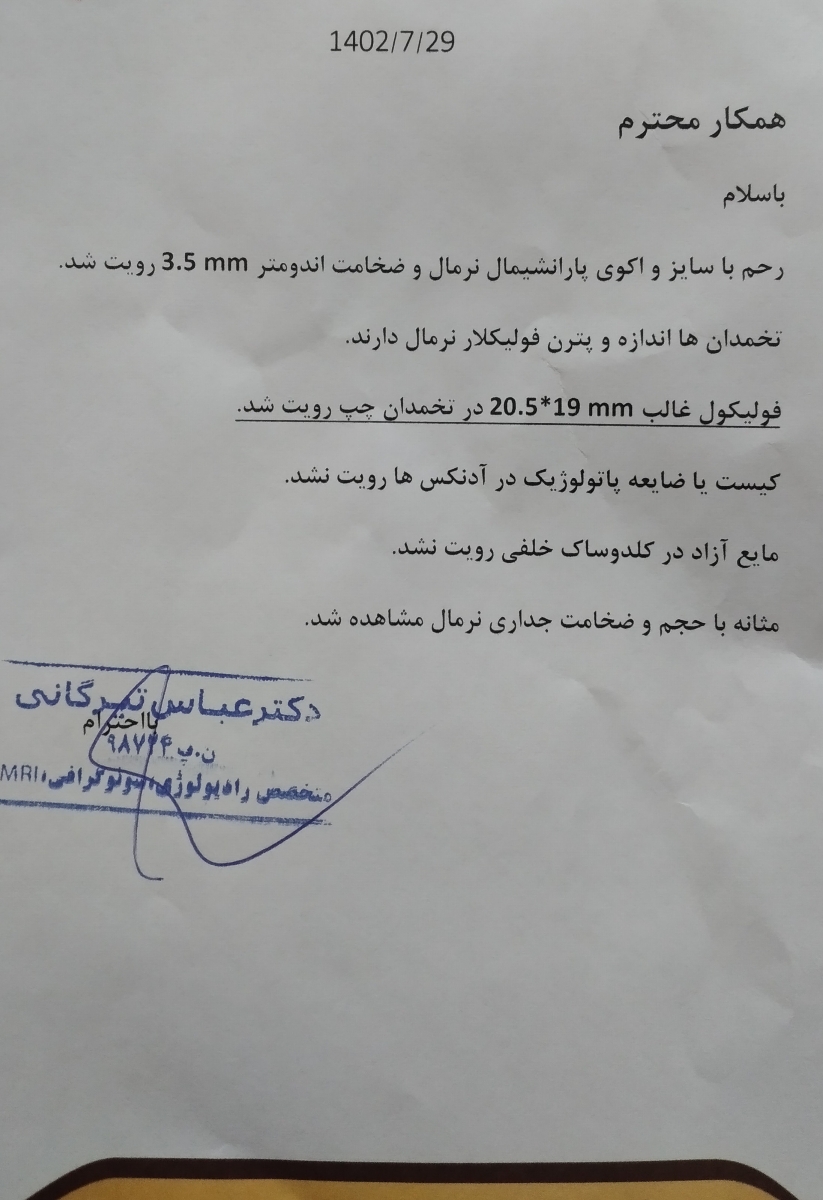 1402/7/29
همکار محترم
باسلام
رحم با سایز و اکوی پارانشیمال نرمال و ضخامت اندومتر 3.5 mm رویت شد.
تخمدان ها اندازه و پترن فولیکلار نرمال دارند.
فولیکول غالب 20.5*19 mm در تخمدان چپ رویت شد.
کیست یا ضایعه پاتولوژیک در آدنکس ها رویت نشد.
مایع آزاد در کلدوساک خلفی رویت نشد.
مثانه با حجم و ضخامت جداری نرمال مشاهده شد.
دکتر عباس تیرگانی
بااحترام
ن.پ
متخصص رادیولوژی، سونوگرافی، MRI